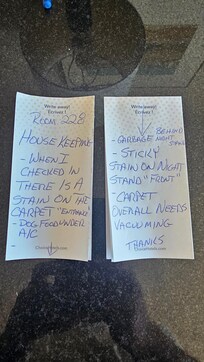 Write away!
Écrivez !
ROOM 228
HOUSE KEEPING
- WHEN I
CHECKED IN
THERE IS A
STAIN ON THE
CARPET "ENTRANCE"
- DOG FOOD UNDER
A/C
-
Write away!
Écrivez !
- GARBAGE BEHIND
NIGHT STAND
- STICKY
STAIN ON NIGHT
STAND "FRONT"
- CARPET
OVERALL NEEDS
VACUUMING
THANKS